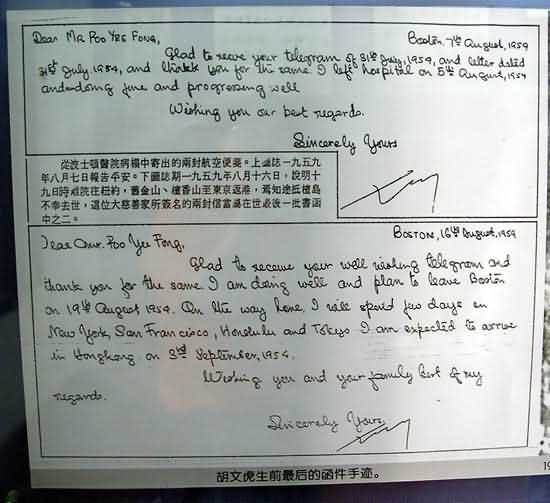 Dear Mr Poo Yee Fong, Boston. 7th August, 1954
Glad to receve your telegram of 31st July, 1954, and letter dated
31st July, 1954, and thank you for the same. I left hospital on 5th August, 1954
and doing fine and progressing well
Wishing you our best regards.
Sincerely Yours
從波士頓醫院病榻中寄出的兩封航空便箋。上函誌一九五九
年八月七日報告平安。下函誌期一九五九年八月十六日,說明十
九日時離院往紐約,舊金山、檀香山至東京返港,焉知途抵檀島
不幸去世,這位大慈善家所簽名的兩封信當為在世最後一批書函
中之二。
Dear Mr. Poo Yee Fong, Boston, 16th August, 1954
Glad to receive your well wishing telegram and
thank you for the same. I am doing well and plan to leave Boston
on 19th August 1954. On the way home, I will spend few days in
New York, San Francisco, Honolulu and Tokyo. I am expected to arrive
in Hongkong on 3rd September, 1954.
Wishing you and your family best of my
regards.
Sincerely Yours,
胡文虎生前最后的函件手迹。